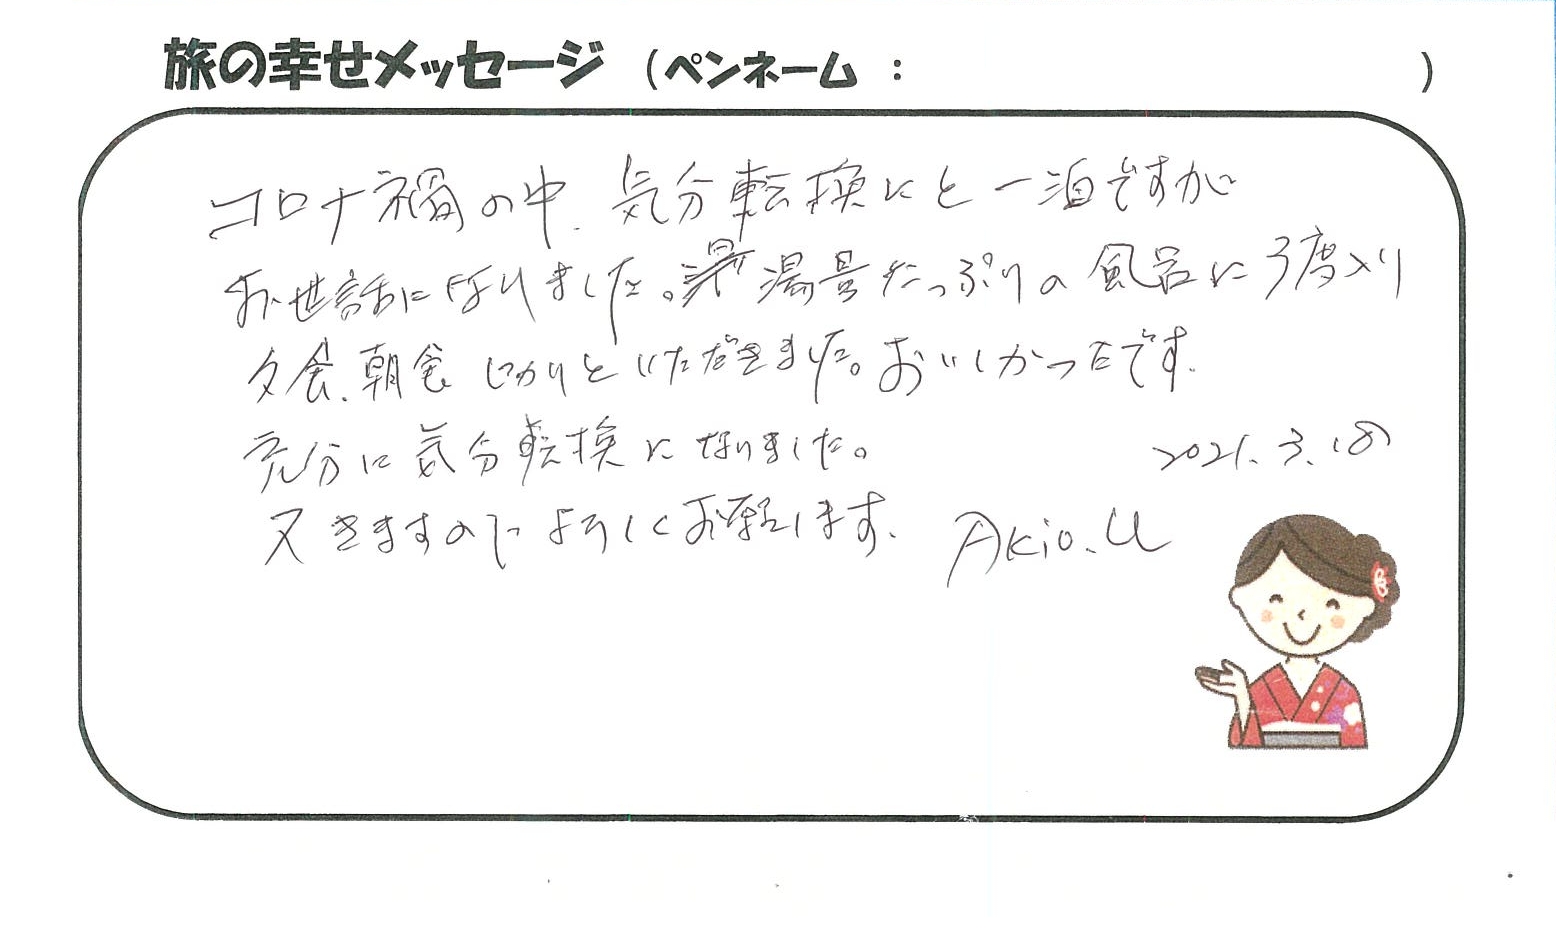 旅の幸せメッセージ (ペンネーム : )
コロナ禍の中、気分転換にと一泊ですが
お世話になりました。湯量たっぷりの風呂に3度入り
夕食、朝食しっかりといただきました。おいしかったです。
充分に気分転換になりました。 2021.3.18
又きますのでよろしくお願いします。 Akio.U